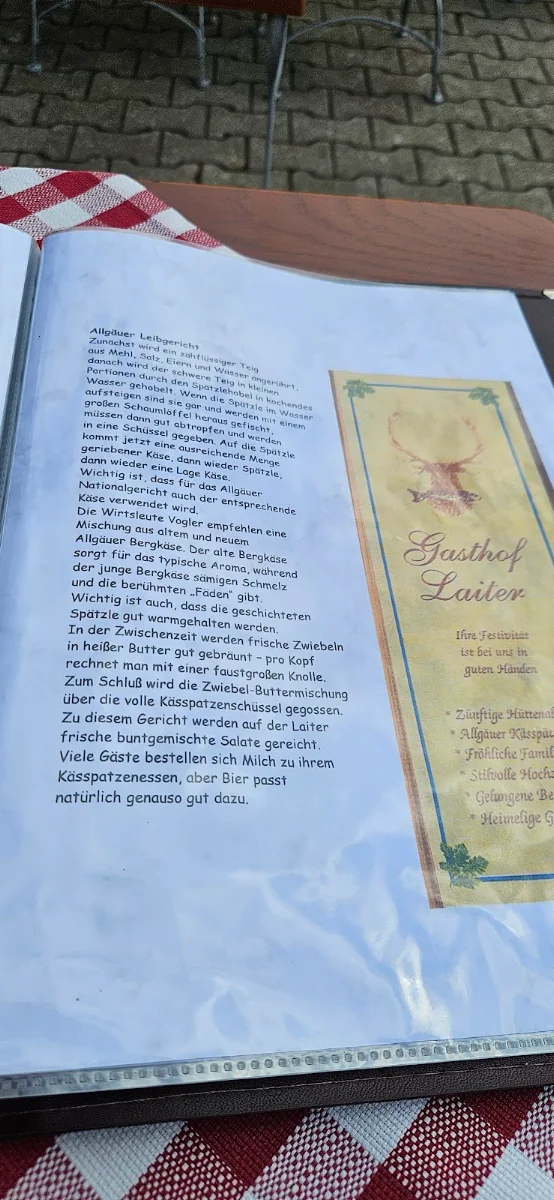 Allgäuer Leibgericht
Zunächst wird ein zähflüssiger Teig
aus Mehl, Salz, Eiern und Wasser angerührt,
danach wird der schwere Teig in kleinen
Portionen durch den Spätzlehobel in kochendes
Wasser gehobelt. Wenn die Spätzle im Wasser
aufsteigen sind sie gar und werden mit einem
großen Schaumlöffel heraus gefischt,
müssen dann gut abtropfen und werden
in eine Schüssel gegeben. Auf die Spätzle
kommt jetzt eine ausreichende Menge
geriebener Käse, dann wieder Spätzle,
dann wieder eine Lage Käse.
Wichtig ist, dass für das Allgäuer
Nationalgericht auch der entsprechende
Käse verwendet wird.
Die Wirtsleute Vogler empfehlen eine
Mischung aus altem und neuem
Allgäuer Bergkäse. Der alte Bergkäse
sorgt für das typische Aroma, während
der junge Bergkäse sämigen Schmelz
und die berühmten „Fäden" gibt.
Wichtig ist auch, dass die geschichteten
Spätzle gut warmgehalten werden.
In der Zwischenzeit werden frische Zwiebeln
in heißer Butter gut gebräunt - pro Kopf
rechnet man mit einer faustgroßen Knolle.
Zum Schluß wird die Zwiebel-Buttermischung
über die volle Kässpatzenschüssel gegossen.
Zu diesem Gericht werden auf der Laiter
frische buntgemischte Salate gereicht.
Viele Gäste bestellen sich Milch zu ihrem
Kässpatzenessen, aber Bier passt
natürlich genauso gut dazu.
Gasthof
Laiter
Ihre Festivität
ist bei uns in
guten Händen
* Zünftige Hüttena
* Allgäuer Kässpa
* Fröhliche Famil
* Stilvolle Hochz
* Gelungene Be
* Heimelige G